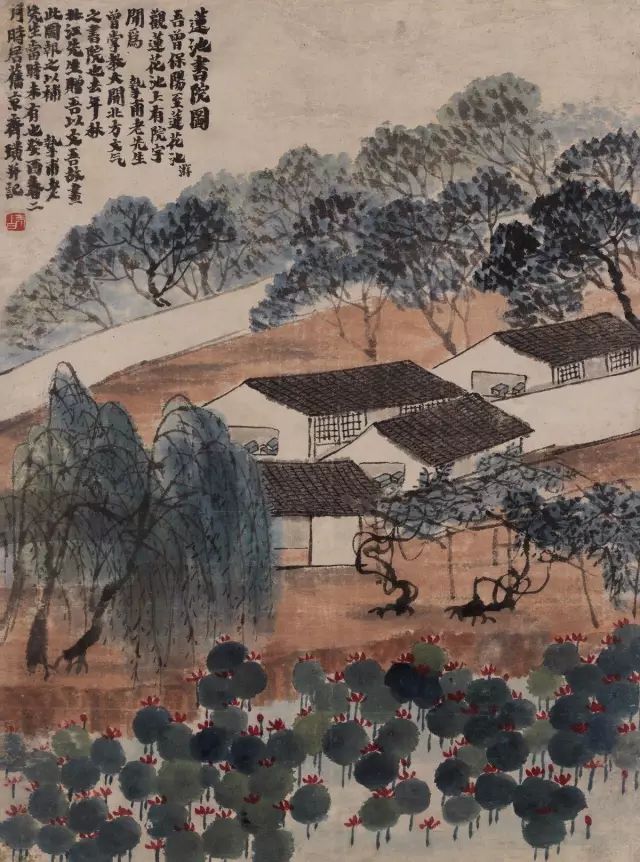 蓮池書院圖
吾曾保陽至蓮花池游
觀蓮花池上有院宇
聞爲 摯甫老先生
曾掌教大開北方文氣
之書院也去年秋
北江先生贈吾以文吾畫
此圖報之以補 摯甫老
先生當時未有也癸酉春二
月時居舊京齊璜并記